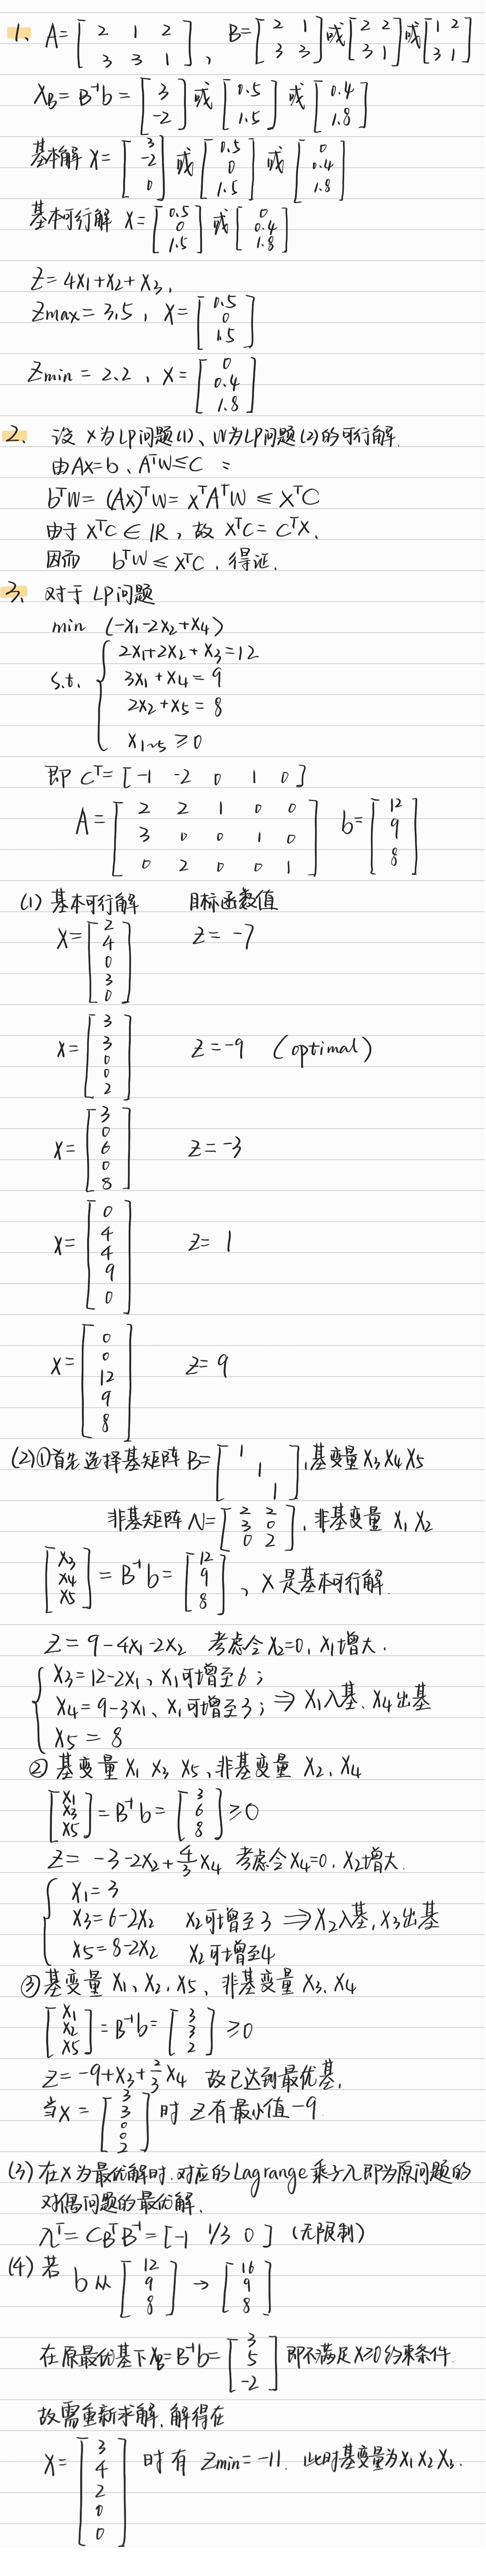 1、 A = [ 2 1 2 ; 3 3 1 ] , B = [ 2 1 ; 3 3 ] 或 [ 2 2 ; 3 1 ] 或 [ 1 2 ; 3 1 ]
X_B = B⁻¹b = [ 3 ; -2 ] 或 [ 0.5 ; 1.5 ] 或 [ 0.4 ; 1.8 ]
基本解 X = [ 3 ; -2 ; 0 ] 或 [ 0.5 ; 0 ; 1.5 ] 或 [ 0 ; 0.4 ; 1.8 ]
基本可行解 X = [ 0.5 ; 0 ; 1.5 ] 或 [ 0 ; 0.4 ; 1.8 ]
Z = 4x₁+x₂+x₃,
Zmax = 3.5 , X = [ 0.5 ; 0 ; 1.5 ]
Zmin = 2.2 , X = [ 0 ; 0.4 ; 1.8 ]
2、 设 X为LP问题(1)、W为LP问题(2)的可行解.
由AX=b 、AᵀW≤C :
bᵀW = (AX)ᵀW = XᵀAᵀW ≤ XᵀC
由于 XᵀC ∈ ℝ , 故 XᵀC = CᵀX .
因而 bᵀW ≤ XᵀC , 得证.
3、 对于 LP问题
min (-x₁-2x₂+x₄)
s.t. { 2x₁+2x₂+x₃=12
3x₁+x₄=9
2x₂+x₅=8
x₁~₅ ≥0
即 Cᵀ = [ -1 -2 0 1 0 ]
A = [ 2 2 1 0 0 ; 3 0 0 1 0 ; 0 2 0 0 1 ] b = [ 12 ; 9 ; 8 ]
(1) 基本可行解 目标函数值
X = [ 2 ; 4 ; 0 ; 3 ; 0 ] Z = -7
X = [ 3 ; 3 ; 0 ; 0 ; 2 ] Z = -9 (optimal)
X = [ 3 ; 0 ; 6 ; 0 ; 8 ] Z = -3
X = [ 0 ; 4 ; 4 ; 9 ; 0 ] Z = 1
X = [ 0 ; 0 ; 12 ; 9 ; 8 ] Z = 9
(2)①首先选择基矩阵 B = [ 1 ; 1 ; 1 ] ,基变量 X₃X₄X₅
非基矩阵 N = [ 2 2 ; 3 0 ; 0 2 ] , 非基变量 X₁ X₂
[ X₃ ; X₄ ; X₅ ] = B⁻¹b = [ 12 ; 9 ; 8 ] 、X 是基本可行解.
Z = 9-4x₁-2x₂ 考虑令 x₂=0, x₁增大.
{ X₃=12-2x₁、x₁可增至6 ;
X₄=9-3x₁、x₁可增至3 ; ⇒ X₁入基、X₄出基
X₅ = 8
② 基变量 X₁ X₃ X₅ ,非基变量 X₂、X₄
[ X₁ ; X₃ ; X₅ ] = B⁻¹b = [ 3 ; 6 ; 8 ] ≥0
Z = -3-2x₂+4/3 x₄ 考虑令 x₄=0, x₂增大.
{ X₁=3
X₃=6-2x₂ x₂可增至3 ⇒ X₂入基, X₃出基
X₅=8-2x₂ x₂可增至4
③基变量 X₁、X₂、X₅、非基变量 X₃、X₄
[ X₁ ; X₂ ; X₅ ] = B⁻¹b = [ 3 ; 3 ; 2 ] ≥0
Z = -9+x₃+2/3 x₄ 故已达到最优基,
当X = [ 3 ; 3 ; 0 ; 0 ; 2 ] 时 Z 有最小值 -9.
(3) 在 X 为最优解时.对应的Lagrange 乘子λ即为原问题的
对偶问题的最优解.
λᵀ = C_BᵀB⁻¹ = [ -1 1/3 0 ] (无限制)
(4) 若 b 从 [ 12 ; 9 ; 8 ] → [ 16 ; 9 ; 8 ]
在原最优基下 X_B = B⁻¹b = [ 3 ; 5 ; -2 ] 即不满足 X≥0 约束条件.
故需重新求解.解得在
X = [ 3 ; 4 ; 2 ; 0 ; 0 ] 时有 Zmin = -11. 此时基变量为 X₁ X₂ X₃.